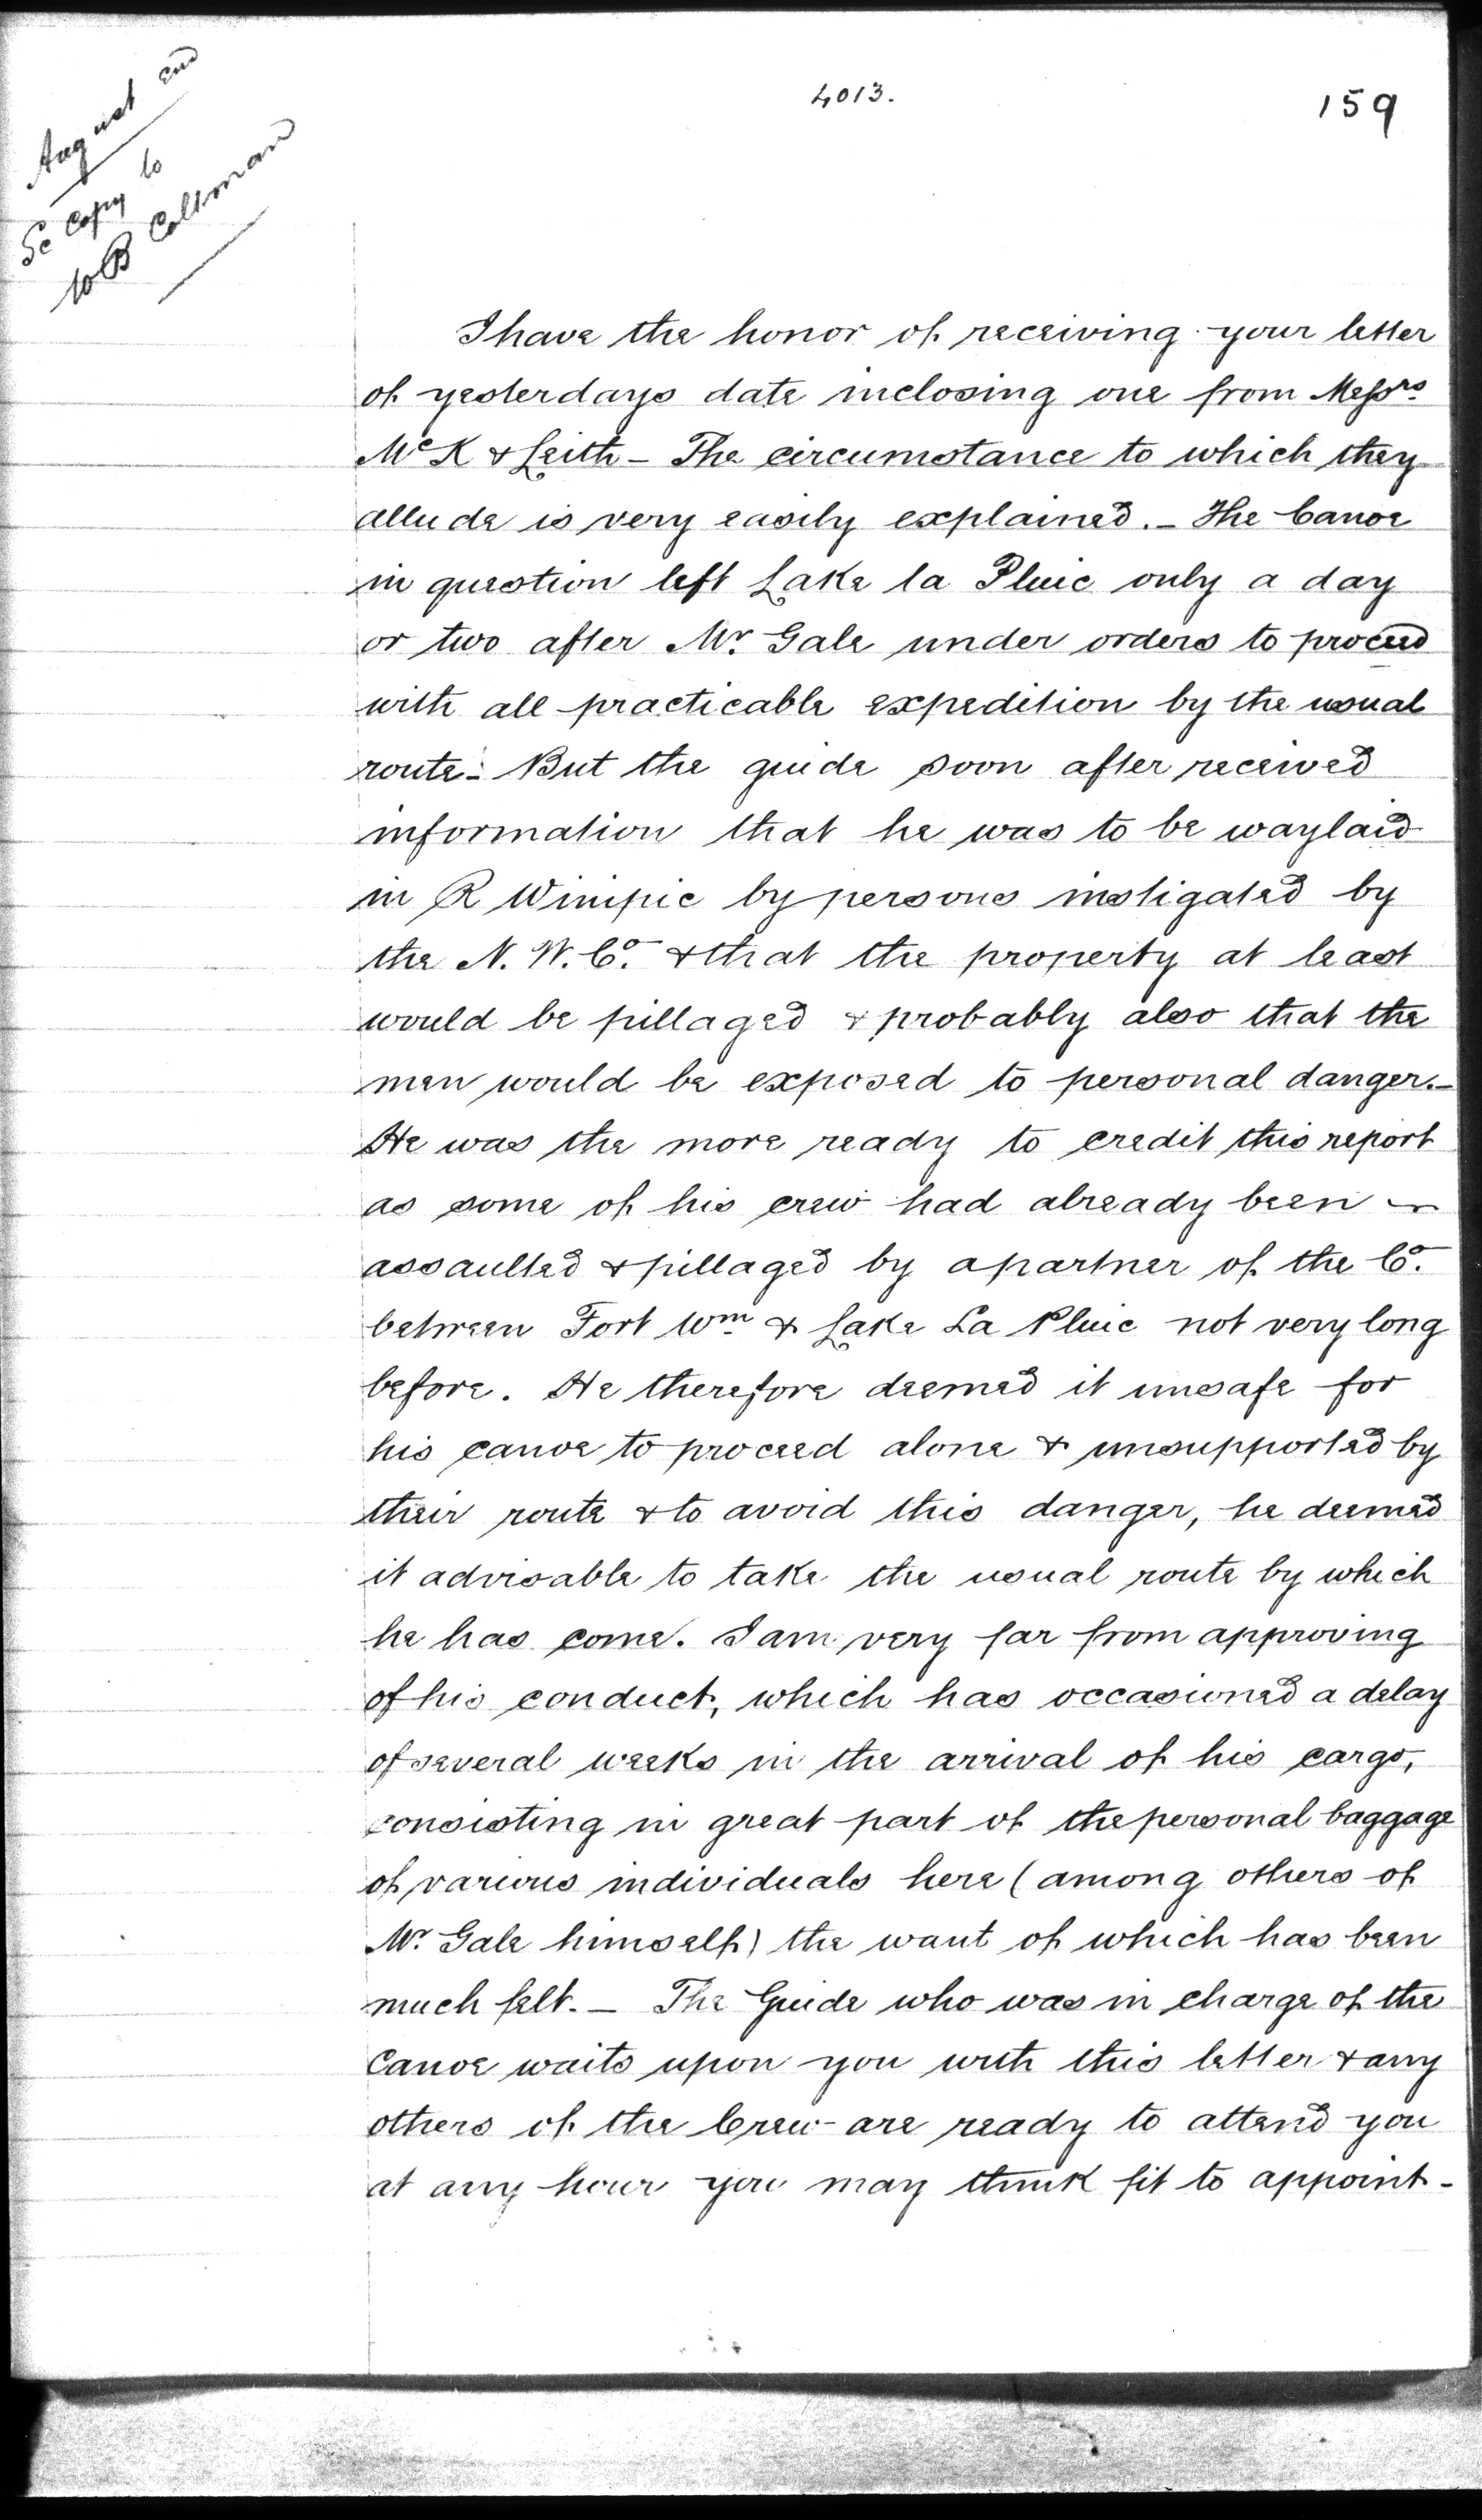 4013.
159
August 2nd
Sc Copy to
W B Coltman
I have the honor of receiving your letter
of yesterdays date inclosing one from Messrs
McK & Leith – The circumstance to which they
allude is very easily explained. – The Canoe
in question left Lake la Pluie only a day
or two after Mr. Gale under orders to proceed
with all practicable expedition by the usual
route. But the guide soon after received
information that he was to be waylaid
in R Winipic by persons instigated by
the N. W. Co. & that the property at least
would be pillaged & probably also that the
men would be exposed to personal danger. –
He was the more ready to credit this report
as some of his crew had already been
assaulted & pillaged by a partner of the Co.
between Fort Wm & Lake La Pluie not very long
before. He therefore deemed it unsafe for
his canoe to proceed alone & unsupported by
their route & to avoid this danger, he deemed
it advisable to take the usual route by which
he has come. I am very far from approving
of his conduct, which has occasioned a delay
of several weeks in the arrival of his cargo,
consisting in great part of the personal baggage
of various individuals here (among others of
Mr. Gale himself) the want of which has been
much felt. – The Guide who was in charge of the
Canoe waits upon you with this letter & any
others of the Crew are ready to attend you
at any hour you may think fit to appoint –